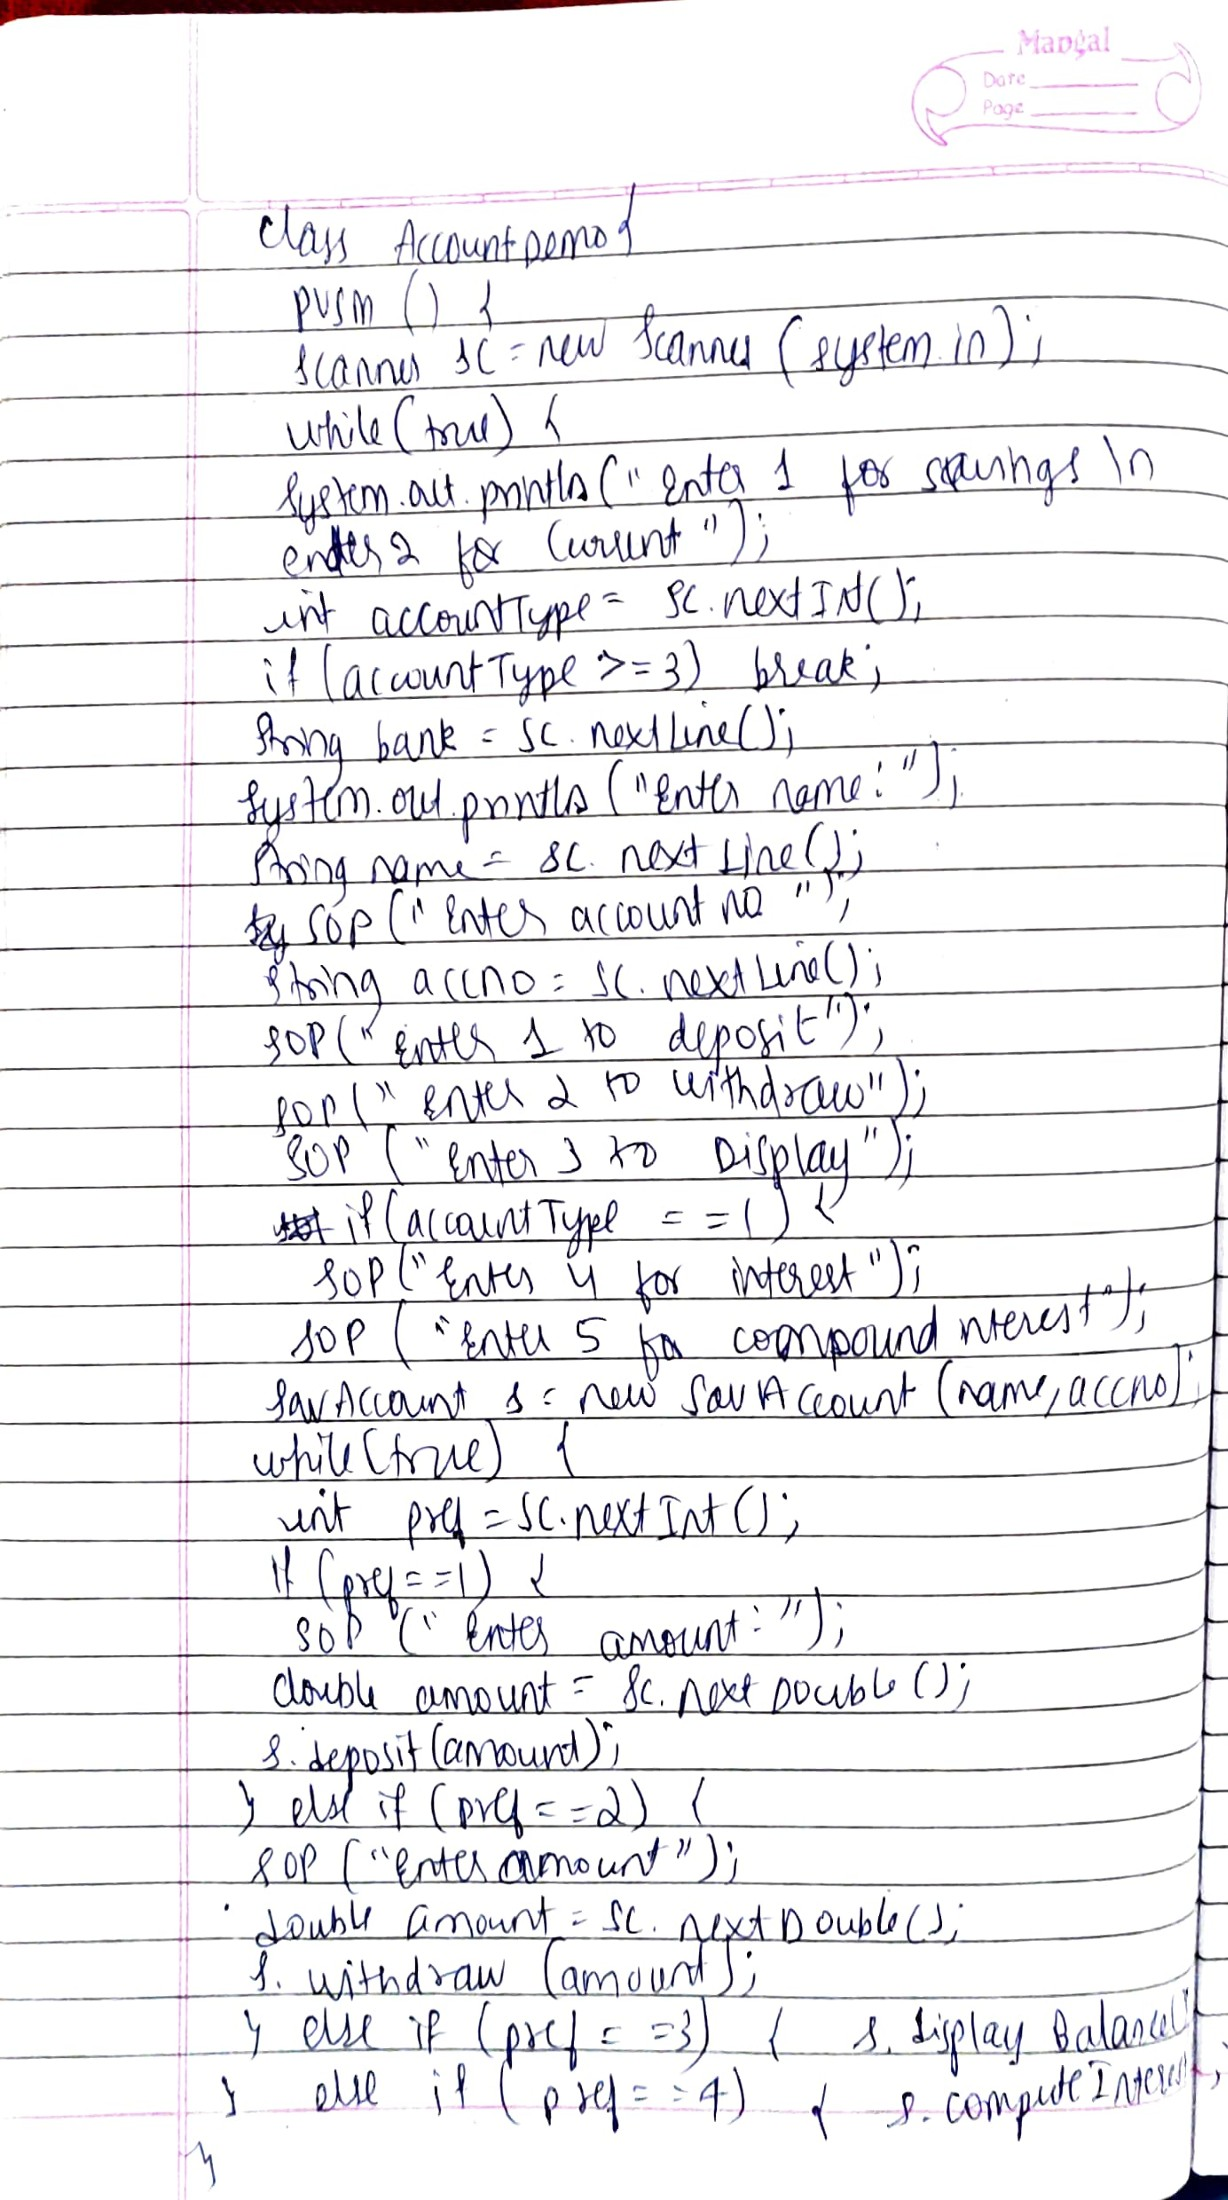 Mangal
Date
Page
class AccountDemo {
pvsm () {
Scanner sc = new Scanner (system.in);
while (true) {
System.out.println (" Enter 1 for savings \n
enter 2 for Current ");
int accountType = sc.nextInt();
if (accountType >= 3) break;
String bank = sc.nextLine();
System.out.println ("Enter name: ");
String name = sc.nextLine();
SOP (" Enter account no ");
String accno = sc.nextLine();
SOP (" Enter 1 to deposit");
SOP (" Enter 2 to withdraw");
SOP (" Enter 3 to Display");
if (accountType == 1) {
SOP (" Enter 4 for interest");
SOP (" Enter 5 for compound nterest");
SavAccount s = new SavAccount (name, accno);
while (true) {
int pref = sc.nextInt();
if (pref == 1) {
SOP (" Enter amount: ");
double amount = sc.nextDouble();
s.deposit (amount);
} else if (pref == 2) {
SOP ("Enter amount");
double amount = sc.nextDouble();
s.withdraw (amount);
} else if (pref == 3) { s.display Balance()
} else if (pref == 4) { s.computeInterest
}